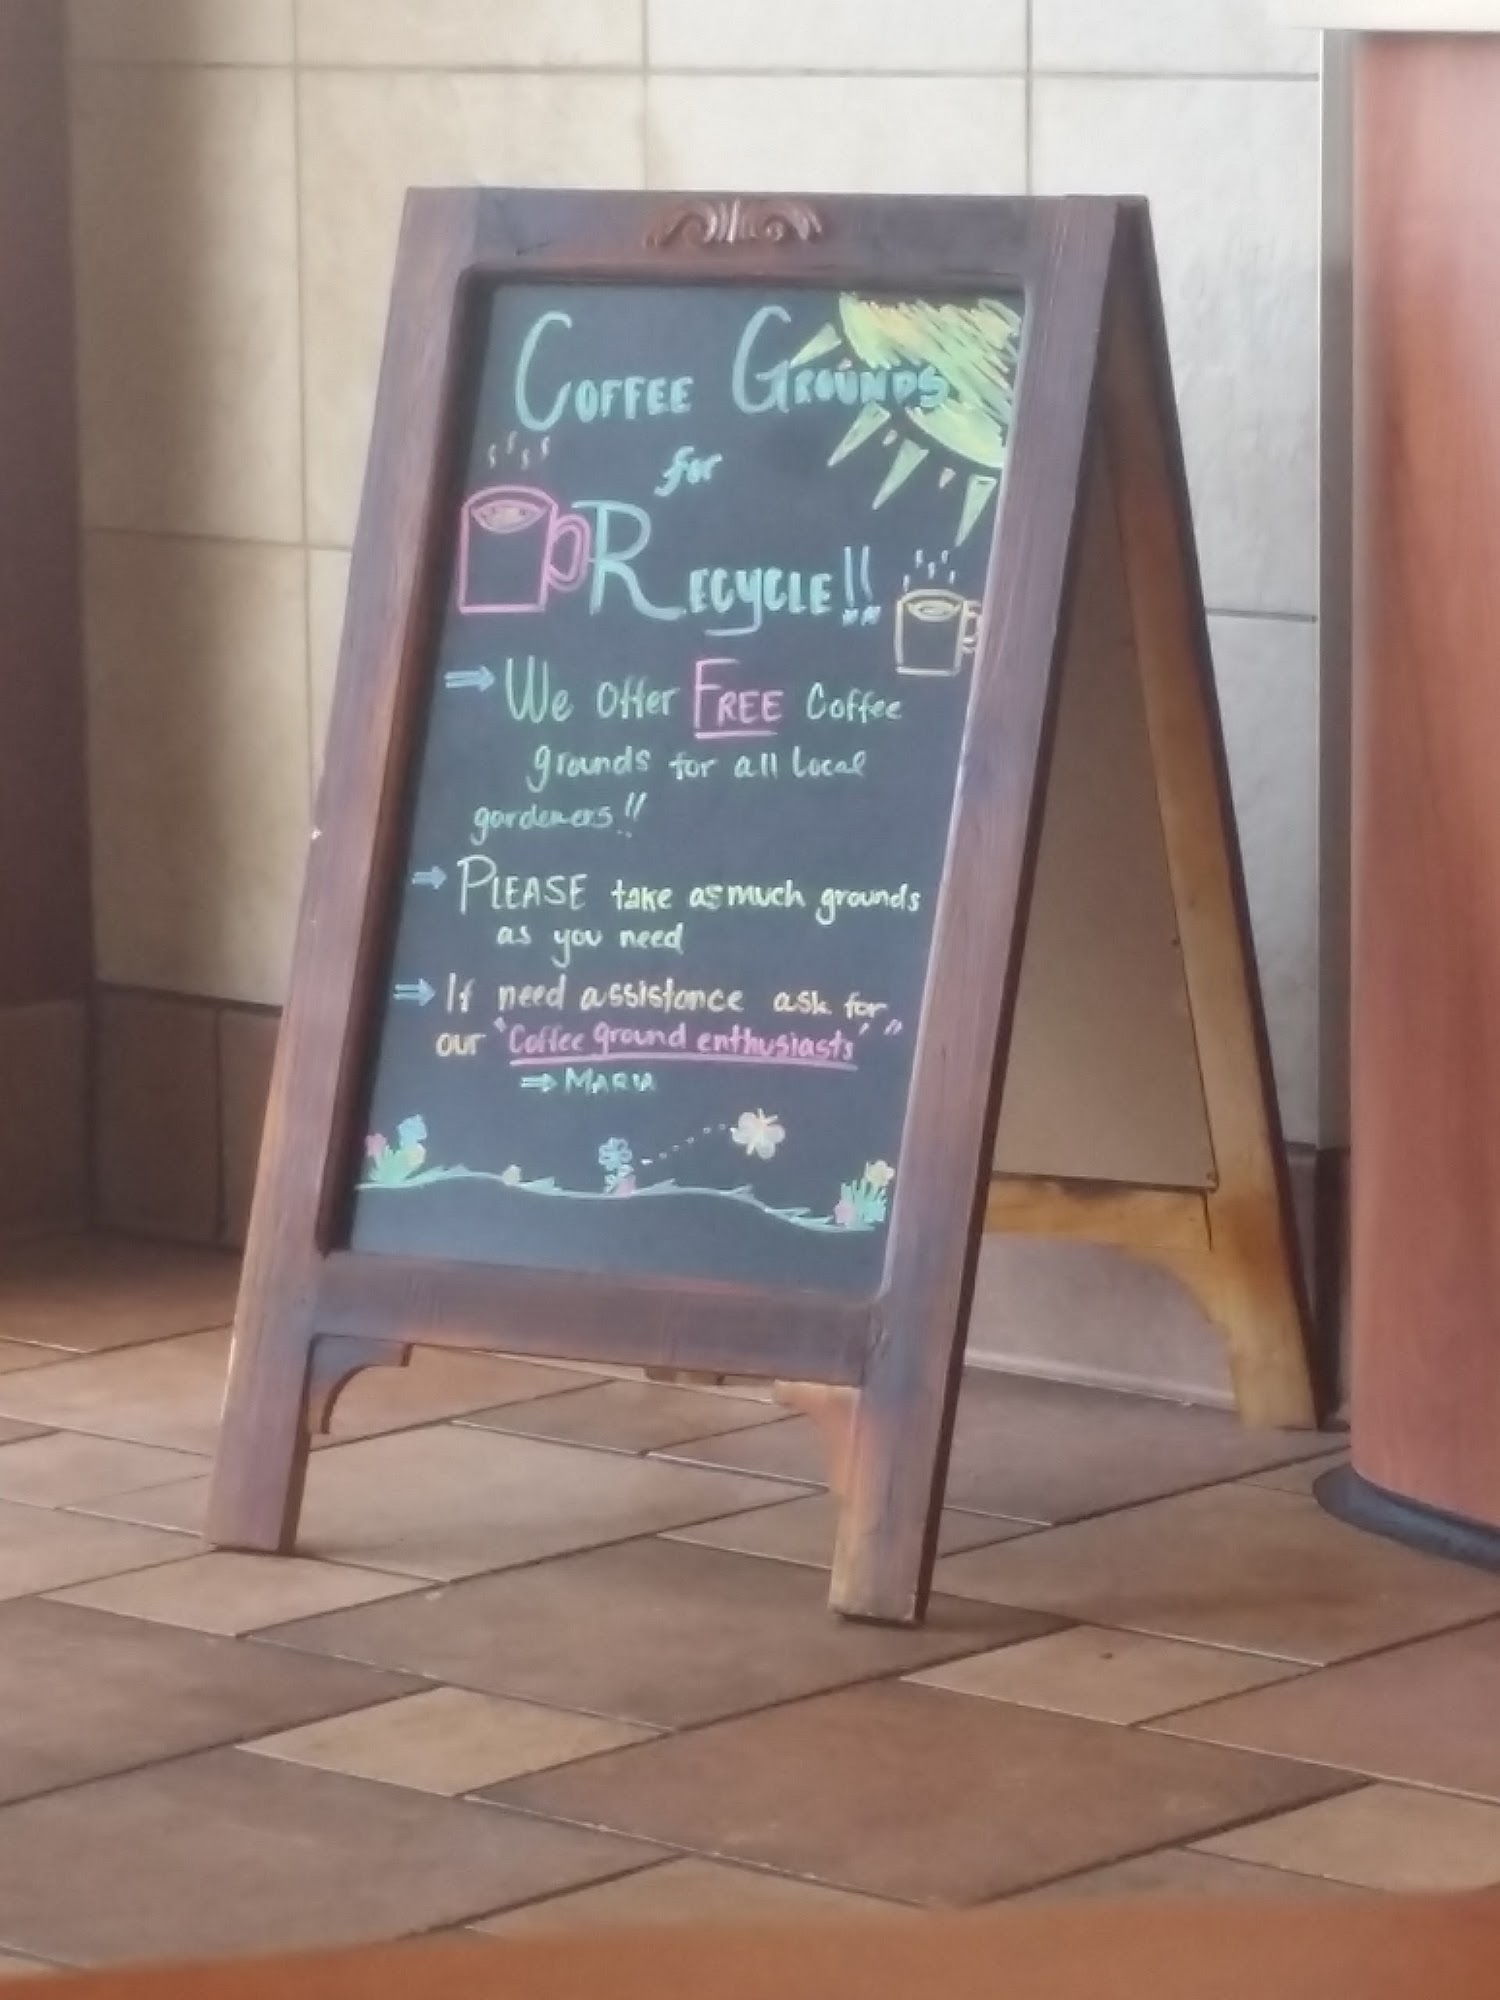 COFFEE GROUNDS
for
RECYCLE!!
⇒ We offer FREE Coffee
grounds for all local
gardeners!!
⇒ PLEASE take as much grounds
as you need
⇒ If need assistance ask for
our "Coffee ground enthusiasts"
⇒ MARIA